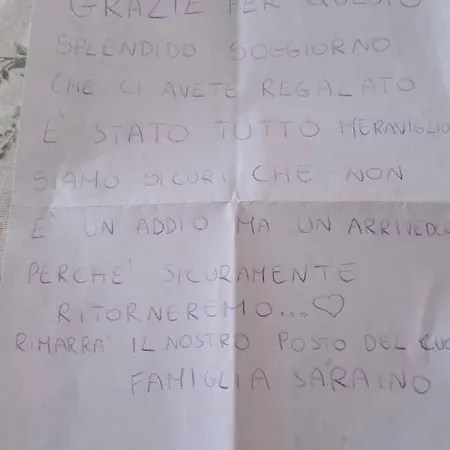 GRAZIE PER QUESTO
SPLENDIDO SOGGIORNO,
CHE CI AVETE REGALATO
E' STATO TUTTO MERAVIGLIO
SIAMO SICURI CHE NON
E' UN ADDIO MA UN ARRIVEDE
PERCHE' SICURAMENTE
RITORNEREMO...♡
RIMARRA' IL NOSTRO POSTO DEL CUO
FAMIGLIA SARAINO